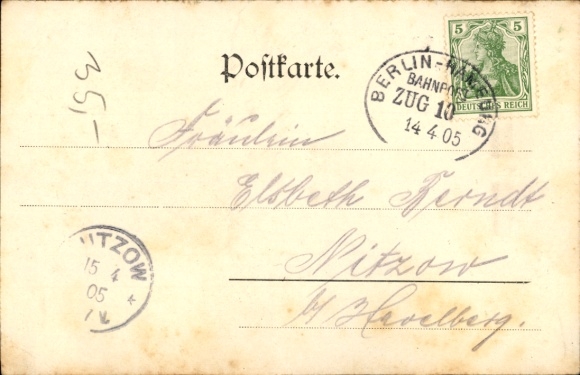 35,-
Postkarte.
5 5
DEUTSCHES REICH
BERLIN-HAMBURG
BAHNPOST
ZUG 10
14 4 05
Fräulein
Elsbeth Berndt
Nitzow
b/ Havelberg.
NITZOW
15 4
05